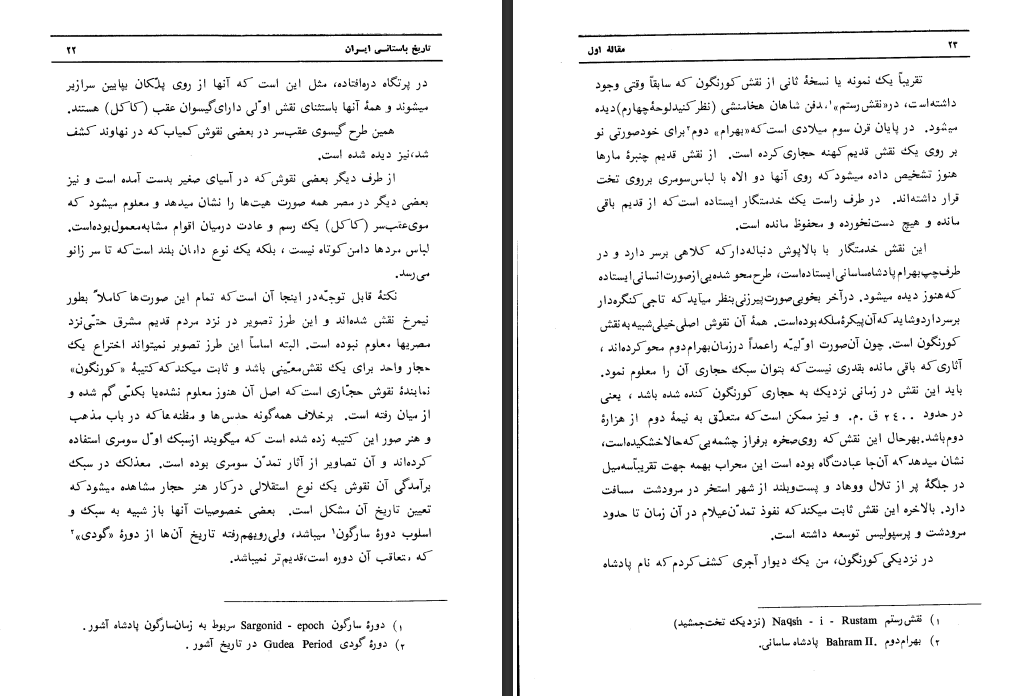 تاریخ باستانی ایران ۲۲
در پرتگاه دره‌افتاده، مثل این است که آنها از روی پلکان بپایین سرازیر
میشوند و همهٔ آنها باستثنای نقش اوّلی دارای گیسوان عقب (کاکل) هستند.
همین طرح گیسوی عقب‌سر در بعضی نقوش کمیاب‌که در نهاوند کشف
شد،نیز دیده شده است.
از طرف دیگر بعضی نقوش‌که در آسیای صغیر بدست آمده است و نیز
بعضی دیگر در مصر همه صورت هیت‌ها را نشان میدهد و معلوم میشود که
موی‌عقب‌سر (کاکل) یک رسم و عادت درمیان اقوام مشابه‌معمول‌بوده‌است.
لباس مردها دامن‌کوتاه نیست ، بلکه یک نوع دامان بلند است‌که تا سر زانو
می‌رسد.
نکتهٔ قابل توجّه‌در اینجا آن است‌که تمام این صورت‌ها کاملاً بطور
نیمرخ نقش شده‌اند و این طرز تصویر در نزد مردم قدیم مشرق حتّی‌نزد
مصریها معلوم نبوده است. البته اساساً این طرز تصویر نمیتواند اختراع یک
حجار واحد برای یک نقش‌معیّنی باشد و ثابت میکند که کتیبهٔ «کورنگون»
نمایندهٔ نقوش حجّاری است‌که اصل آن هنوز معلوم نشده‌یا بکلّی گم شده و
از میان رفته است. برخلاف همه‌گونه حدس‌ها و مظنه‌ها که در باب مذهب
و هنر صور این کتیبه زده شده است که میگویند ازسبک اوّل سومری استفاده
کرده‌اند و آن تصاویر از آثار تمدّن سومری بوده است. معذلک در سبک
برآمدگی آن نقوش یک نوع استقلالی درکار هنر حجار مشاهده میشود که
تعیین تاریخ آن مشکل است. بعضی خصوصیات آنها باز شبیه به سبک و
اسلوب دورهٔ سارگون۱ میباشد، ولی‌رویهم‌رفته تاریخ آن‌ها از دورهٔ «گودی»۲
که متعاقب آن دوره است،قدیم‌تر نمیباشد.
۱) دورهٔ سارگون Sargonid - epoch مربوط به زمان‌سارگون پادشاه آشور.
۲) دورهٔ گودی Gudea Period در تاریخ آشور.
مقالهٔ اول ۲۳
تقریباً یک نمونه یا نسخهٔ ثانی از نقش کورنگون که سابقاً وقتی وجود
داشته‌است، در«نقش رستم»۱مدفن شاهان هخامنشی (نظر کنیدلوحهٔ چهارم) دیده
میشود. در پایان قرن سوم میلادی است که«بهرام» دوم۲برای خودصورتی نو
بر روی یک نقش قدیم کهنه حجاری کرده است. از نقش قدیم چنبرهٔ مارها
هنوز تشخیص داده میشود که روی آنها دو الاه با لباس‌سومری برروی تخت
قرار داشته‌اند. در طرف راست یک خدمتگار ایستاده است‌که از قدیم باقی
مانده و هیچ دست‌نخورده و محفوظ مانده است.
این نقش خدمتگار با بالاپوش دنباله‌دارکه کلاهی برسر دارد و در
طرف‌چپ‌بهرام پادشاه‌ساسانی ایستاده‌است، طرح محو شده‌یی ازصورت‌انسانی‌ایستاده
که هنوز دیده میشود. درآخر بخوبی‌صورت‌پیرزنی‌بنظر میآید که تاجی کنگره‌دار
برسر داردوشاید که‌آن‌پیکرهٔ‌ملکه‌بوده‌است. همهٔ آن نقوش اصلی‌خیلی‌شبیه به‌نقش
کورنگون است. چون آن‌صورت اوّلیّه راعمداً درزمان‌بهرام‌دوم محوکرده‌اند ،
آثاری که باقی مانده بقدری نیست‌که بتوان سبک حجاری آن را معلوم نمود.
باید این نقش در زمانی نزدیک به حجاری کورنگون کنده شده باشد ، یعنی
در حدود ۲٤۰۰ ق .م. و نیز ممکن است‌که متعلّق به نیمهٔ دوم از هزارهٔ
دوم‌باشد.بهرحال این نقش که روی‌صخره برفراز چشمه‌یی‌که‌حالاخشکیده‌است،
نشان میدهد که آن‌جا عبادت‌گاه بوده است این محراب بهمه جهت تقریباًسه‌میل
در جلگهٔ پر از تلال ووهاد و پست‌وبلند از شهر استخر در مرودشت مسافت
دارد. بالاخره این نقش ثابت میکند که نفوذ تمدّن‌عیلام در آن زمان تا حدود
مرودشت و پرسپولیس توسعه داشته است.
در نزدیکی کورنگون، من یک دیوار آجری کشف کردم که نام پادشاه
۱) نقش رستم Naqsh - i - Rustam (نزدیک تخت‌جمشید)
۲) بهرام‌دوم Bahram II. پادشاه ساسانی.